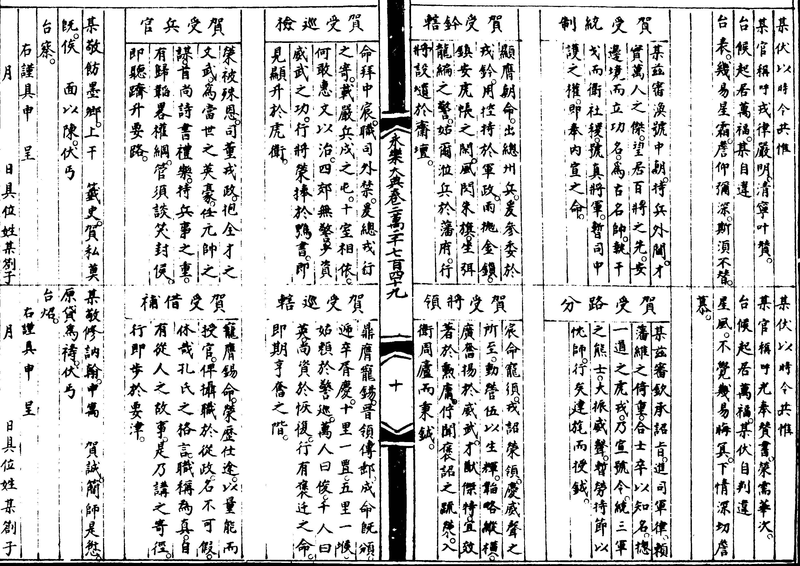 某伏以時令共惟
某官稱呼戎律嚴明清寧叶贊
台候起居萬福某自違
台表幾易星霜詹仰彌深斯須不替
賀受統制
某茲審渙號中朝持兵外閫才
實萬人之傑望若百將之先安
邊境而立功名為古名帥執干
戈而衛社稷號真將軍暫司中
護之權即奉內宣之命
賀受鈐轄
顯膺朝命出總州兵爰參委於
戎鈐用控持於軍政雨拋金鎖
鎮安虎帳之閑風閃朱旗坐弭
龍編之警姑爾涖兵於藩府行
將設壇於齋壇
永樂大典卷二萬二千七百四十九
十
賀受巡檢
命拜中宸職司外禁爰總戎行
之寄載嚴兵戍之屯十室相依
何敢惠文以治四郊無警實資
威武之功行將榮捧於鶚書即
見顯升於虎衛
賀受兵官
榮被殊恩司董戎政抱全才之
文武為當世之英豪任元帥之
謀首尚詩書禮樂持兵事之重
有歸韜畧權綱管須談笑封侯
即聽躋升要路
某敬飭墨鄉上干 籤史賀私莫
既俟 面以陳伏丐
台察
右謹具申 呈
月 日具位姓某劄子
某伏以時令共惟
某官稱呼光奉贊書榮需華次
台候起居萬福某伏自判違
星風不覺幾易晦冥下情深切詹
慕
賀受路分
某茲審欽承詔旨進司軍律賴
藩維之倚重合士卒以知名總
一道之虎戎乃宣號令統三軍
之熊士大振威聲暫勞持節以
忱師行矣建旄而授鉞
賀受將領
宸命寵頒戎詔榮領慶威聲之
所至勳營伍以生輝韜略縱橫
廣舊揚於威武才猷傑特宜效
著於勳庸佇聞褒詔之疏榮入
衛周廬而秉鉞
賀受巡轄
鼎膺寵錫晉領傳郵成命既頒
迎卒胥慶十里一置五里一堠
姑賴於警巡萬人曰俊千人曰
英尚資於恢復行有褒遷之命
即期亨奮之階
賀受借補
寵膺錫命榮歷仕途以量能而
授官俾攝職於從政名不可假
休哉孔氏之格言職稱為真自
有從人之故事是乃講之寄徑
行即步於要津
某敬修訥翰申寓 賀誠簡師是愆
原貸為禱伏丐
台炤
右謹具申 呈
月 日具位姓某劄子